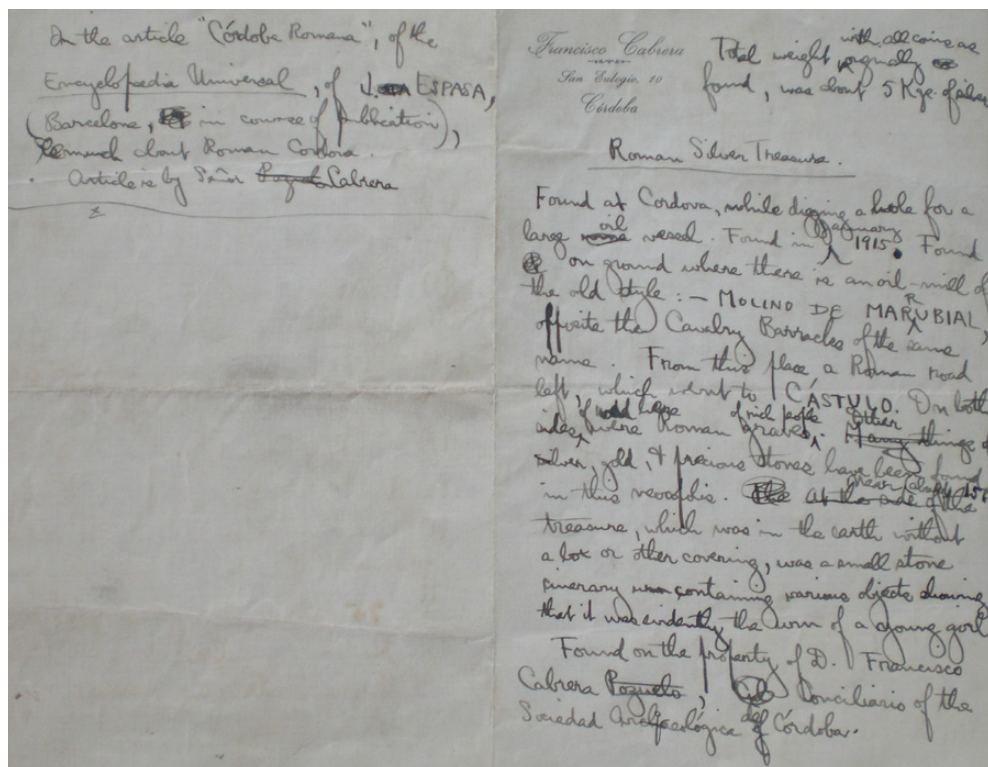 In the article "Córdoba Romana", of the
Encyclopedia Universal, of J. ESPASA,
(Barcelona, in course of publication),
much about Roman Cordova.
Article is by Señor Pozuelo Cabrera
x
Francisco Cabrera
San Eulogio, 10
Córdoba
Total weight, with all coins as
orginally
found, was about 5 Kgs. of silver
Roman Silver Treasure.
Found at Cordova, while digging a hole for a
large oil vessel. Found in January 1915. Found
on ground where there is an oil-mill of
the old style:— MOLINO DE MARRUBIAL,
opposite the Cavalry Barracks of the same
name. From this place a Roman road
left, which went to CÁSTULO. On both
sides, were Roman graves of rich people. Other
Many things of
silver, gold, & precious stones have been found
in this necropolis. At the side of the
treasure, which was in the earth without
a box or other covering, was a small stone
cinerary urn containing various objects showing
that it was evidently the urn of a young girl
Found on the property of D. Francisco
Cabrera Pozuelo, Conciliario of the
Sociedad Arqueológica de Córdoba.